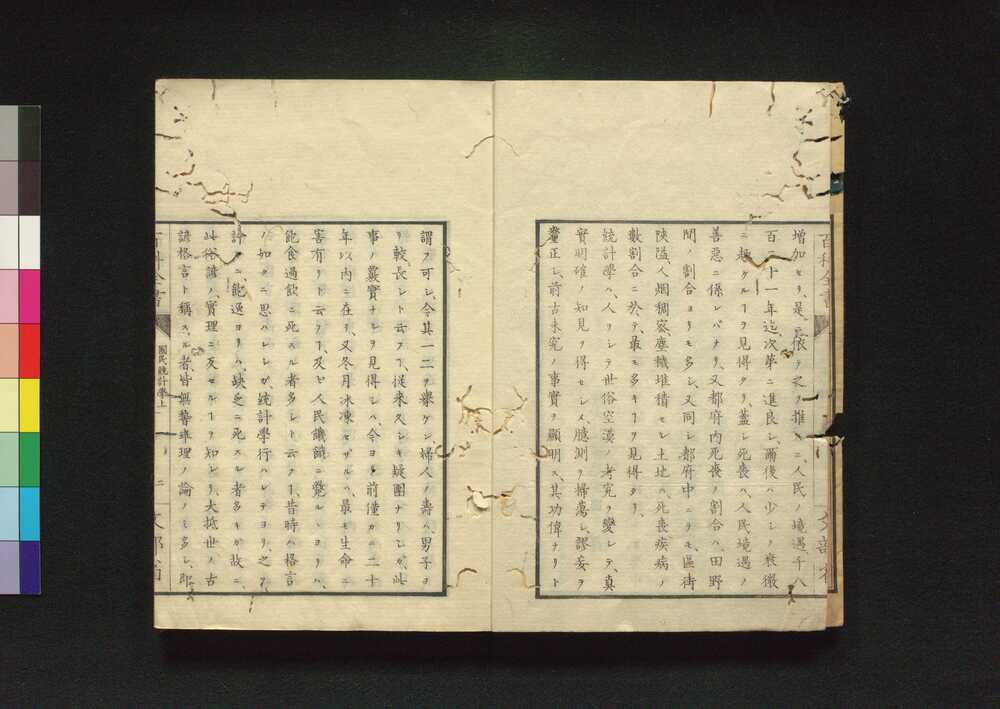 百科全書
文部省
増加セリ、是ニ依テ之ヲ推スニ、人民ノ境遇、千八
百二十一年迄、次第ニ進良シ、爾後ハ少シク衰微
ニ趣クルヿヲ見得タリ、蓋シ死喪ハ、人民境遇ノ
善惡ニ係レバナリ、又都府内死喪ノ割合ハ、田野
間ノ割合ヨリモ多シ、又同シ都府中ニテモ、區街
陜隘、人烟稠密、塵穢堆積セル土地ハ、死喪疾病ノ
數割合ニ於テ、最モ多キヿヲ見得タリ、
統計學ハ、人ヲシテ世俗空漠ノ考究ヲ變シテ、眞
實明確ノ知見ヲ得セシメ、臆測ヲ掃蕩シ、謬妄ヲ
釐正シ、前古未究ノ事實ヲ顯明ス、其功偉ナリト
謂フ可シ、今其一二ヲ擧ケン、婦人ノ壽ハ、男子ヨ
リ較、長シト云フヿ、從来久シキ疑團ナリシガ、此
事ノ眞實ナルヲ見得シハ、今ヨリ前僅カニ二十
年以内ニ在リ、又冬月冰凍セザルハ、最モ生命ニ
害有リト云フヿ、及ヒ人民饑餓ニ斃ルヽヨリハ、
飽食過飲ニ死スル者多シト云フヿ、昔時ハ格言
ノ如クニ思ハレシガ、統計學行ハレテヨリ、之ヲ
計ルニ、飽過ヨリハ、缺乏ニ死スル者多キガ故ニ、
此俗諺ノ、實理ニ反セルヿヲ知レリ、大抵世ノ古
諺格言ト稱スル者、皆無稽非理ノ論ノミ多シ、即
百科全書
國民統計學上
二
文部省